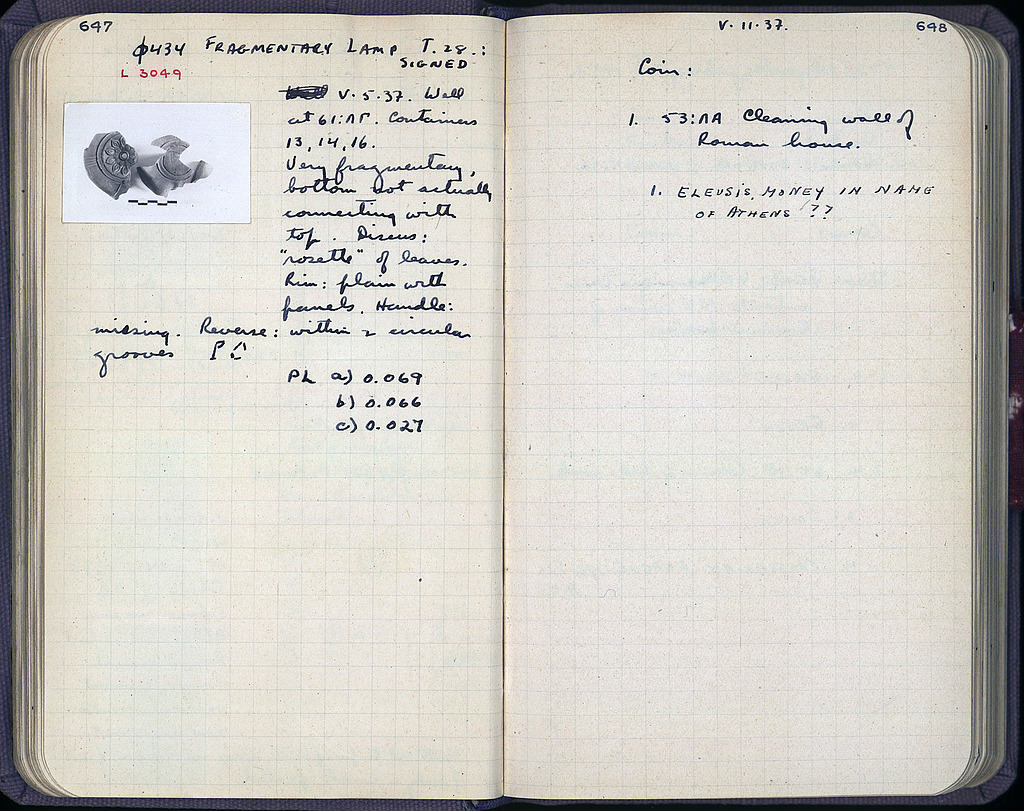 647
φ434 FRAGMENTARY LAMP T. 28.:
SIGNED
L 3049
V. 5. 37. Well
at 61:ΛΓ. Containers
13, 14, 16.
Very fragmentary,
bottom not actually
connecting with
top. Discus:
"rosette" of leaves.
Rim: plain with
panels. Handle:
missing. Reverse: within 2 circular
grooves
PL a) 0.069
b) 0.066
c) 0.027
V. 11. 37.
648
Coin:
1. 53:ΛΑ Cleaning wall of
Roman house.
1. ELEUSIS, MONEY IN NAME
OF ATHENS !??